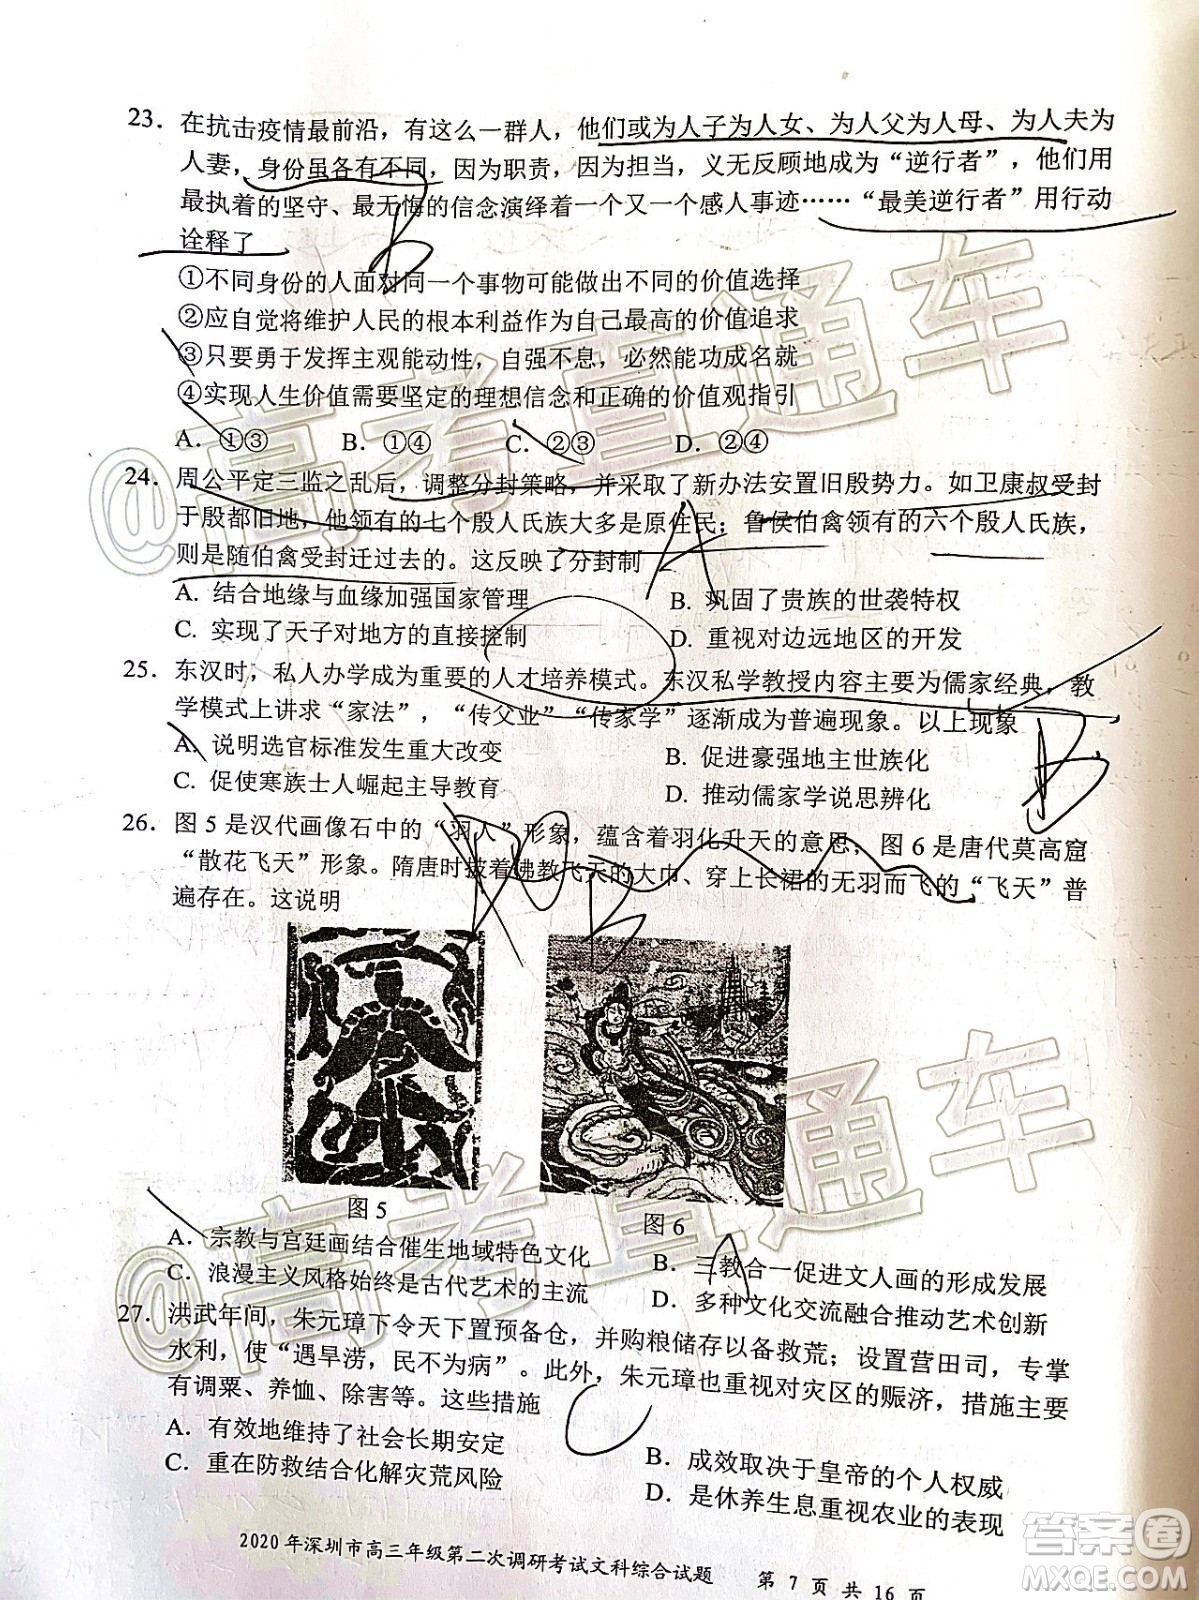 23. 在抗击疫情最前沿，有这么一群人，他们或为人子为人女、为人父为人母、为人夫为
人妻，身份虽各有不同，因为职责，因为担当，义无反顾地成为“逆行者”，他们用
最执着的坚守、最无悔的信念演绎着一个又一个感人事迹……“最美逆行者”用行动
诠释了
①不同身份的人面对同一个事物可能做出不同的价值选择
②应自觉将维护人民的根本利益作为自己最高的价值追求
③只要勇于发挥主观能动性，自强不息，必然能功成名就
④实现人生价值需要坚定的理想信念和正确的价值观指引
A. ①③ B. ①④ C. ②③ D. ②④
24. 周公平定三监之乱后，调整分封策略，并采取了新办法安置旧殷势力。如卫康叔受封
于殷都旧地，他领有的七个殷人氏族大多是原住民；鲁侯伯禽领有的六个殷人氏族，
则是随伯禽受封迁过去的。这反映了分封制
A. 结合地缘与血缘加强国家管理 B. 巩固了贵族的世袭特权
C. 实现了天子对地方的直接控制 D. 重视对边远地区的开发
25. 东汉时，私人办学成为重要的人才培养模式。东汉私学教授内容主要为儒家经典，教
学模式上讲求“家法”，“传父业”“传家学”逐渐成为普遍现象。以上现象
A. 说明选官标准发生重大改变 B. 促进豪强地主世族化
C. 促使寒族士人崛起主导教育 D. 推动儒家学说思辨化
26. 图 5 是汉代画像石中的“羽人”形象，蕴含着羽化升天的意思；图 6 是唐代莫高窟
“散花飞天”形象。隋唐时披着佛教飞天的大巾、穿上长裙的无羽而飞的“飞天”普
遍存在。这说明
图 5 图 6
A. 宗教与宫廷画结合催生地域特色文化 B. 三教合一促进文人画的形成发展
C. 浪漫主义风格始终是古代艺术的主流 D. 多种文化交流融合推动艺术创新
27. 洪武年间，朱元璋下令天下置预备仓，并购粮储存以备救荒；设置营田司，专掌
水利，使“遇旱涝，民不为病”。此外，朱元璋也重视对灾区的赈济，措施主要
有调粟、养恤、除害等。这些措施
A. 有效地维持了社会长期安定 B. 成效取决于皇帝的个人权威
C. 重在防救结合化解灾荒风险 D. 是休养生息重视农业的表现
2020 年深圳市高三年级第二次调研考试文科综合试题 第 7 页 共 16 页
B
A
B
B
A
C
@高考直通车
@高考直通车
答案圈
MXQE.COM